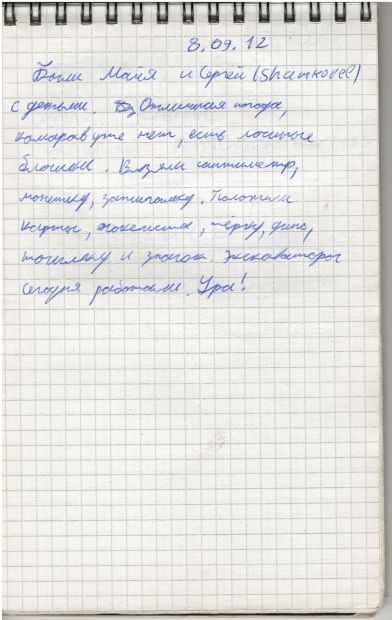 8.09.12
Были Майя и Сергей (Shamkovel)
с детьми. Отличная погода,
комаров уже нет, есть лосиные
блошки. Взяли сантиметр,
монетку, запипалку. Положили
карты, наклейка, тёрку, диск,
точилку и значок. Экскаваторы
сегодня работали. Ура!